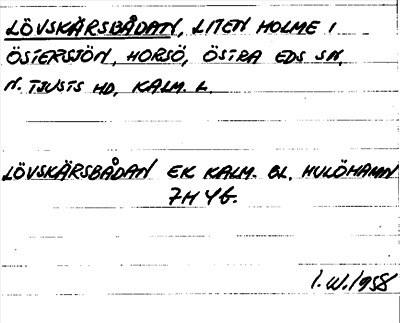 LÖVSKÄRSBÅDAN, LITEN HOLME I
ÖSTERSJÖN, HORSÖ, ÖSTRA EDS SN,
N. TJUSTS HD, KALM. L.
LÖVSKÄRSBÅDAN EK KALM. BL. HULÖHAMN
7H 4b.
I.W. 1958